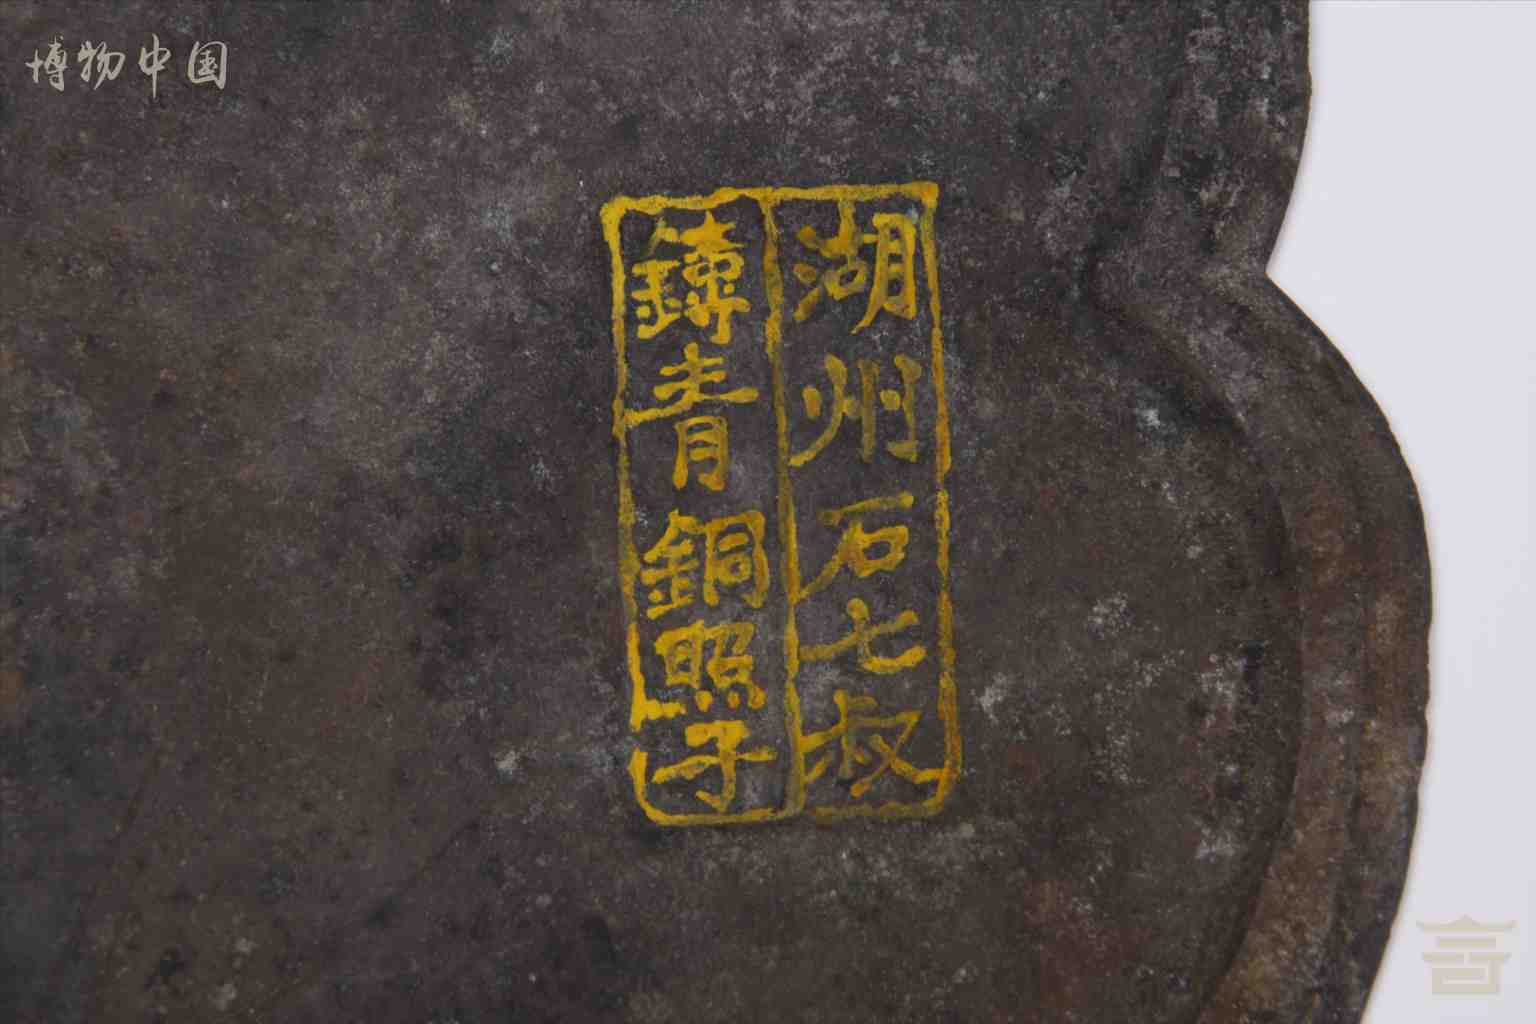 博物中国
湖州石七叔
鑄青銅照子